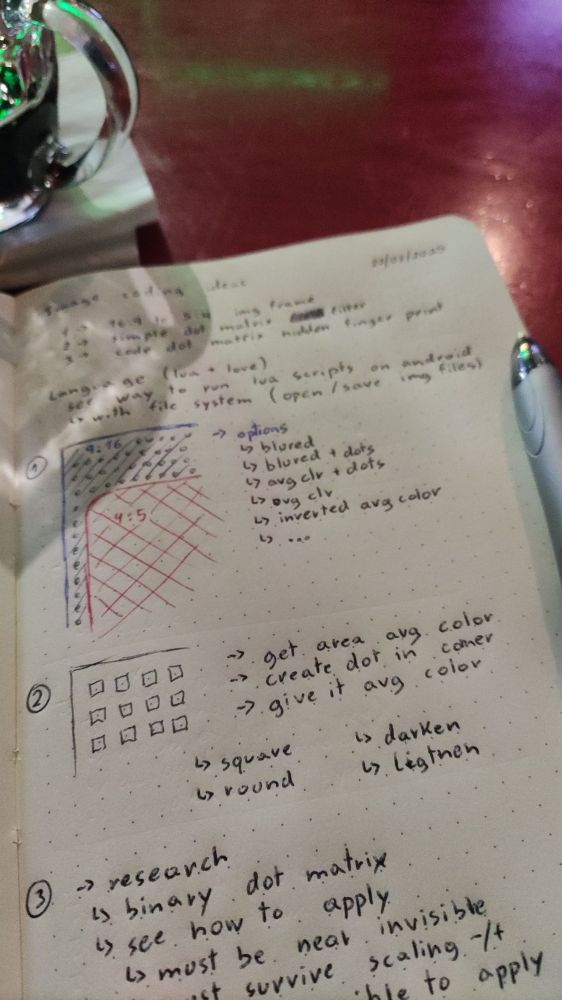 Image coding ideas
1 → 16:9 to 5:4 img frame
2 → simple dot matrix filter
3 → code dot matrix hidden finger print
Language (lua + love)
see way to run lua scripts on android
↳ with file system (open/save img files)
①
9:16
4:5
→ options
↳ blured
↳ blured + dots
↳ avg clr + dots
↳ avg clr
↳ inverted avg color
↳ ...
②
→ get area avg color
→ create dot in corner
→ give it avg color
↳ square
↳ round
↳ darken
↳ ligtnen
③
→ research
↳ binary dot matrix
↳ see how to apply
↳ must be near invisible
survive scaling -/+
to apply